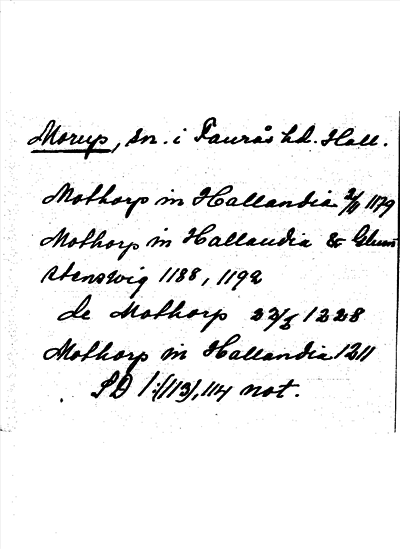 Morup, sn. i Faurås hd. Hall.
Mothorp in Hallandia 2/11 1179
Mothorp in Hallandia & Glum
stenswig 1188, 1192
de Mothorp 22/5 1228
Mothorp in Hallandia 1211
SD 1:(113), 114 not.